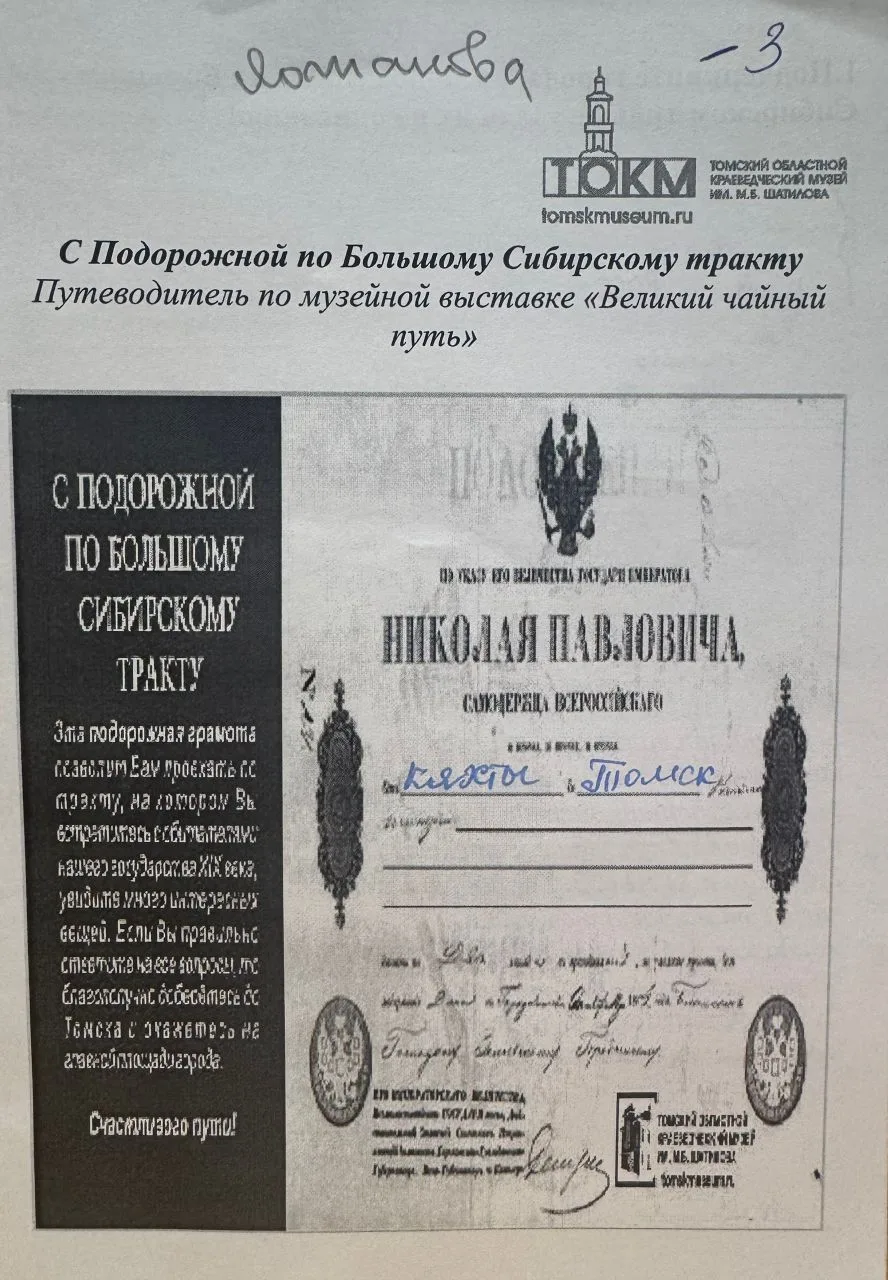 - 3
ТОКМ
ТОМСКИЙ ОБЛАСТНОЙ
КРАЕВЕДЧЕСКИЙ МУЗЕЙ
ИМ. М.Б. ШАТИЛОВА
tomskmuseum.ru
С Подорожной по Большому Сибирскому тракту
Путеводитель по музейной выставке «Великий чайный
путь»
С ПОДОРОЖНОЙ
ПО БОЛЬШОМУ
СИБИРСКОМУ
ТРАКТУ
Эта подорожная грамота
позволит Вам проехать по
тракту, на котором Вы
встретитесь с обитателями
нашего государства XIX века,
увидите много интересных
вещей. Если Вы правильно
ответите на все вопросы, то
благополучно доберётесь до
Томска и окажетесь на
главной площади города.
Счастливого пути!
ПО УКАЗУ ЕГО ВЕЛИЧЕСТВА ГОСУДАРЯ ИМПЕРАТОРА
НИКОЛАЯ ПАВЛОВИЧА,
САМОДЕРЖЦА ВСЕРОССИЙСКАГО
и прочая, и прочая, и прочая
От Кяхты до Томск
ЕГО ИМПЕРАТОРСКАГО ВЕЛИЧЕСТВА
ТОМСКИЙ ОБЛАСТНОЙ
КРАЕВЕДЧЕСКИЙ МУЗЕЙ
ИМ. М.Б. ШАТИЛОВА
tomskmuseum.ru